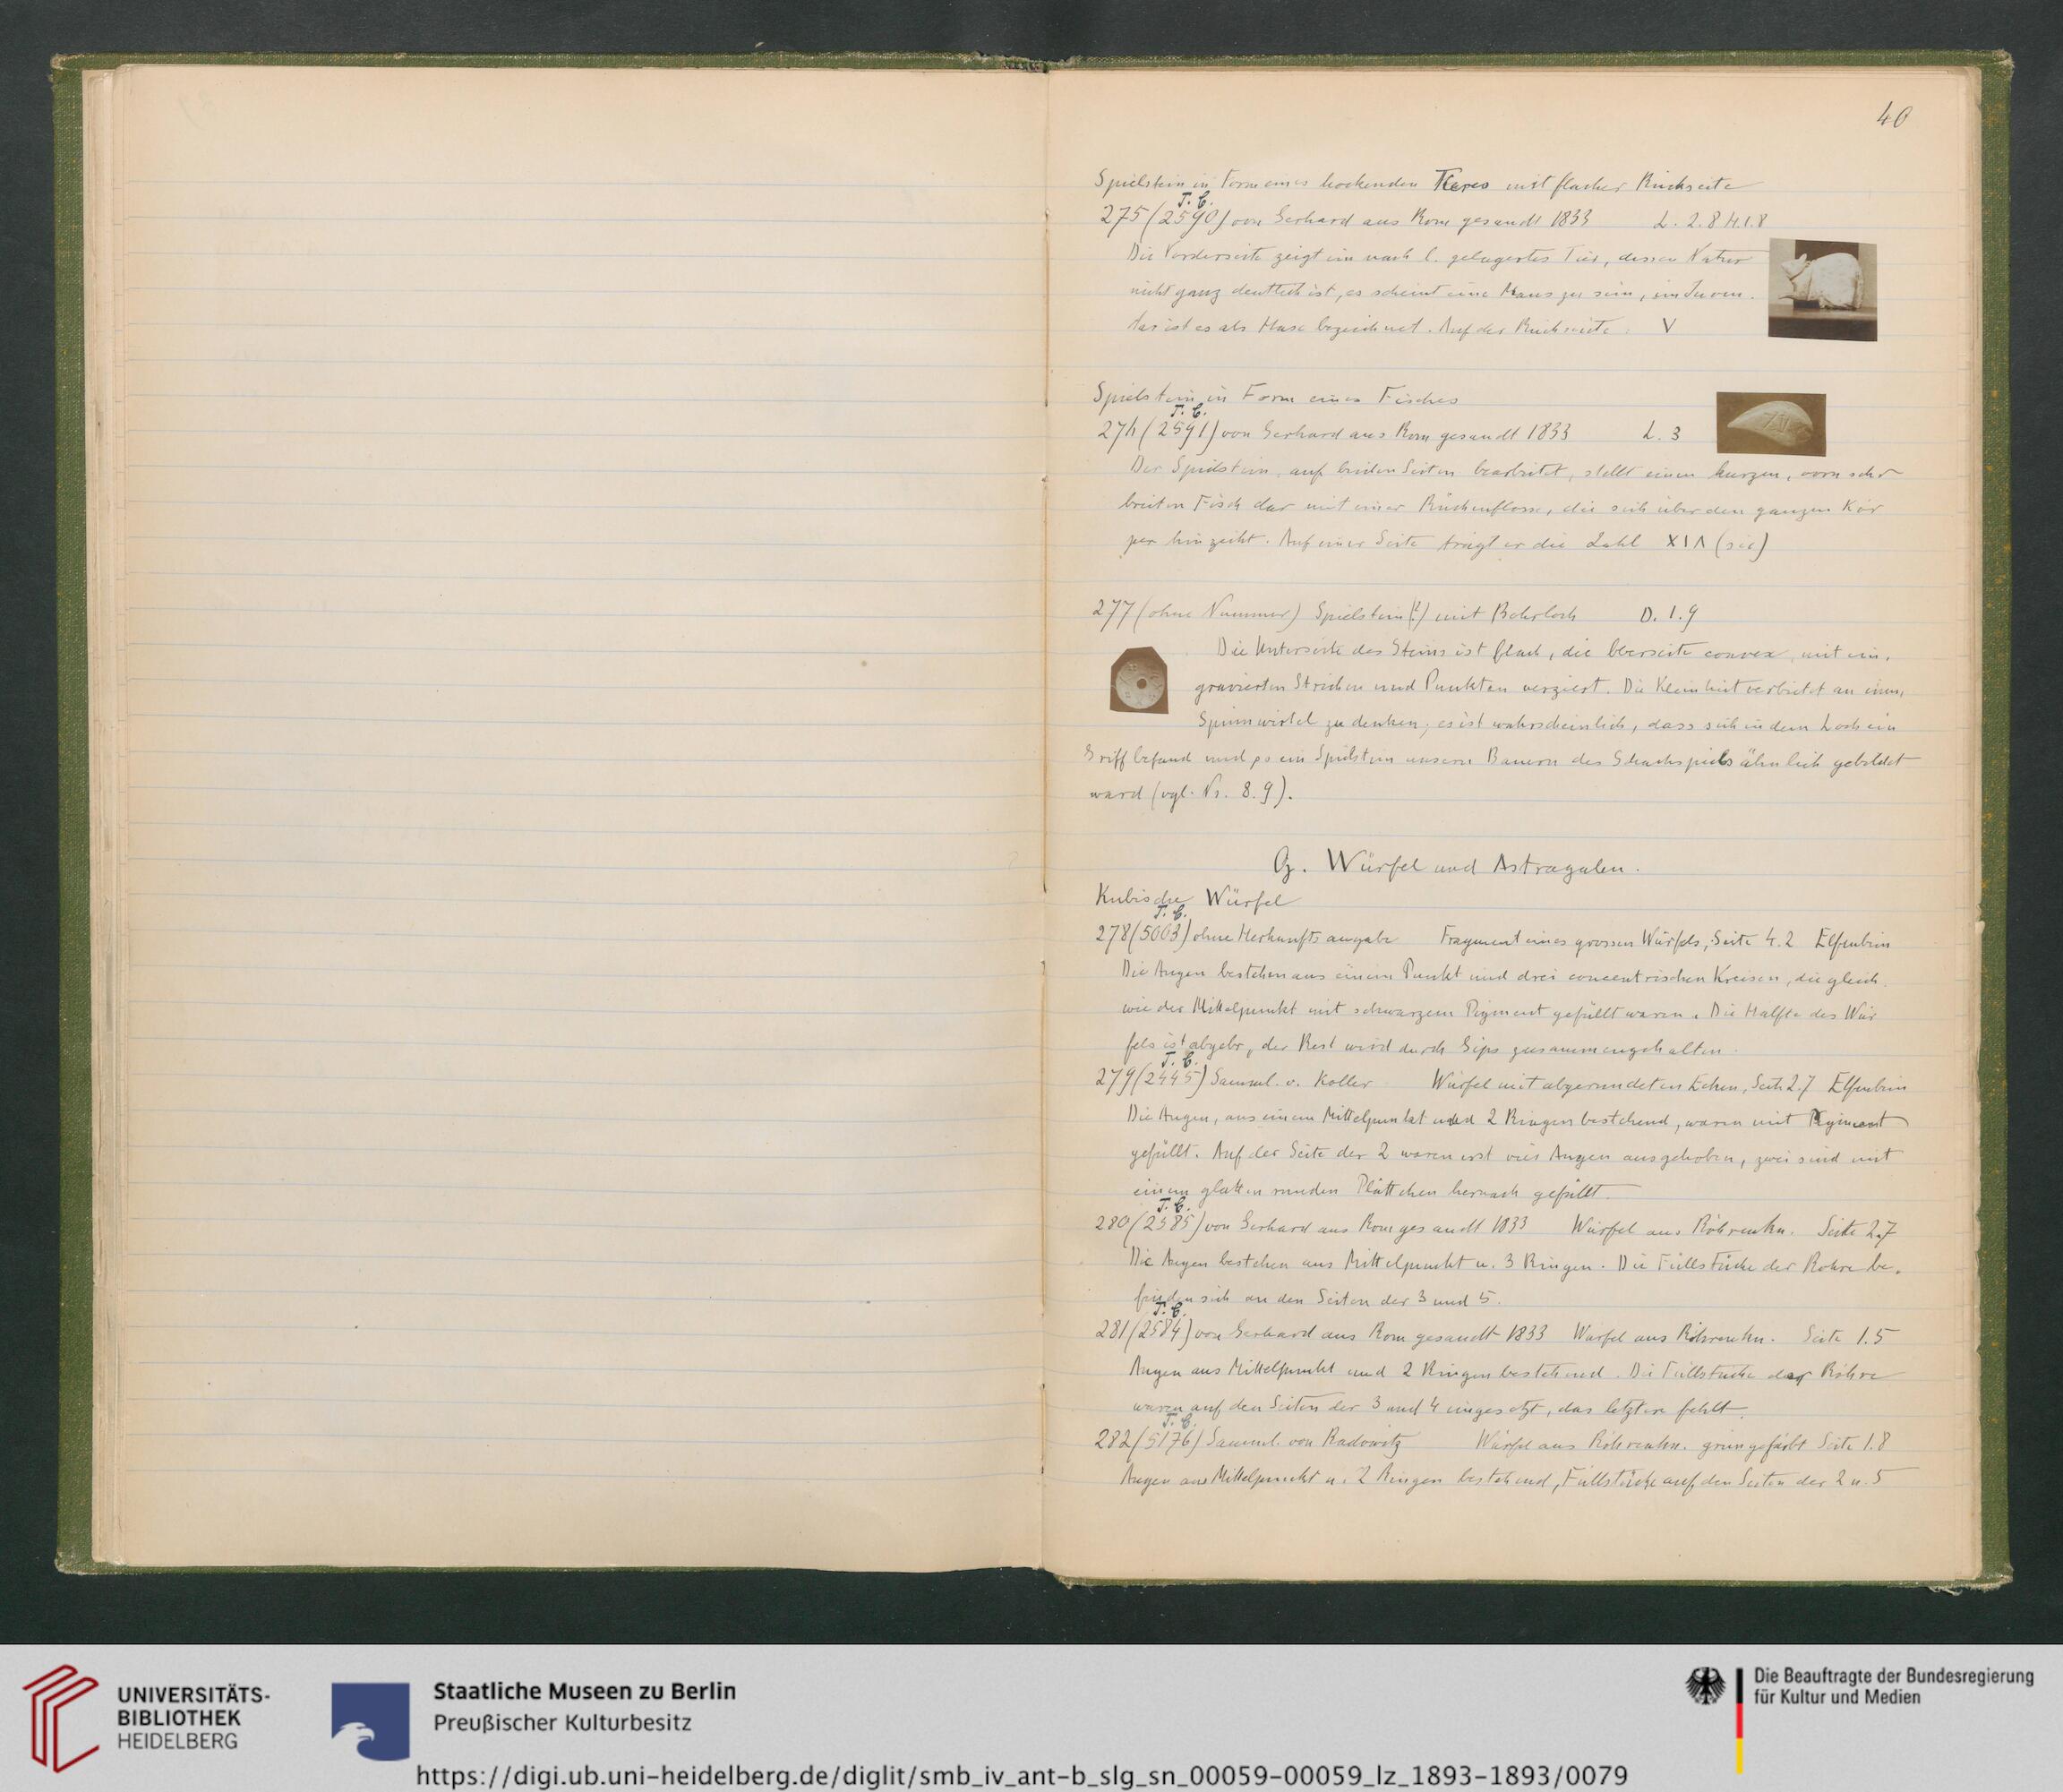 40
Spielstein in Form eines hockenden Tieres mit flacher Rückseite
T. C.
275 (2590) von Gerhard aus Rom gesandt 1833 L. 2.8 H. 1.8
Die Vorderseite zeigt ein nach l. gelagertes Tier, dessen Natur
nicht ganz deutlich ist, es scheint eine Maus zu sein, im Inven.
tar ist es als Hase bezeichnet. Auf der Rückseite: V
Spielstein in Form eines Fisches
T. C.
276 (2591) von Gerhard aus Rom gesandt 1833 L. 3
Der Spielstein, auf beiden Seiten bearbeitet, stellt einen kurzen, vorn sehr
breiten Fisch dar mit einer Rückenflosse, die sich über den ganzen Kör
per hinzieht. Auf einer Seite trägt er die Zahl XIΛ (sic)
277 (ohne Nummer) Spielstein (?) mit Bohrloch D. 1.9
Die Unterseite des Steins ist flach, die Oberseite convex mit ein.
gravierten Strichen und Punkten verziert. Die Kleinheit verbietet an einen
Spinnwirtel zu denken, es ist wahrscheinlich, dass sich in dem Loch ein
Griff befand und so ein Spielstein unsern Bauern des Schachspiels ähnlich gebildet
ward (vgl. Nr. 8.9).
G. Würfel und Astragalen.
Kubische Würfel
T. C.
278 (5003) ohne Herkunftsangabe Fragment eines grossen Würfels, Seite 4.2 Elfenbein
Die Augen bestehen aus einem Punkt und drei concentrischen Kreisen, die gleich
wie der Mittelpunkt mit schwarzem Pigment gefüllt waren. Die Hälfte des Wür
fels ist abgebr., der Rest wird durch Gips zusammengehalten.
T. C.
279 (2445) Samml. v. Koller Würfel mit abgerundeten Ecken, Seite 2.7 Elfenbein
Die Augen, aus einem Mittelpunkt und 2 Ringen bestehend, waren mit Pigment
gefüllt. Auf der Seite der 2 waren erst vier Augen ausgehoben, zwei sind mit
einem glatten runden Plättchen hernach gefüllt.
T. C.
280 (2585) von Gerhard aus Rom gesandt 1833 Würfel aus Röhrenkn. Seite 2.7
Die Augen bestehen aus Mittelpunkt u. 3 Ringen. Die Füllstücke der Röhre be.
finden sich an den Seiten der 3 und 5.
T. C.
281 (2584) von Gerhard aus Rom gesandt 1833 Würfel aus Röhrenkn. Seite 1.5
Augen aus Mittelpunkt und 2 Ringen bestehend. Die Füllstücke der Röhre
waren auf den Seiten der 3 und 4 eingesetzt, das letztere fehlt.
T. C.
282 (5176) Samml. von Radowitz Würfel aus Röhrenkn. grün gefärbt Seite 1.8
Augen aus Mittelpunkt u. 2 Ringen bestehend, Füllstücke auf den Seiten der 2 u. 5
UNIVERSITÄTS-
BIBLIOTHEK
HEIDELBERG
Staatliche Museen zu Berlin
Preußischer Kulturbesitz
Die Beauftragte der Bundesregierung
für Kultur und Medien
https://digi.ub.uni-heidelberg.de/diglit/smb_iv_ant-b_slg_sn_00059-00059_lz_1893-1893/0079